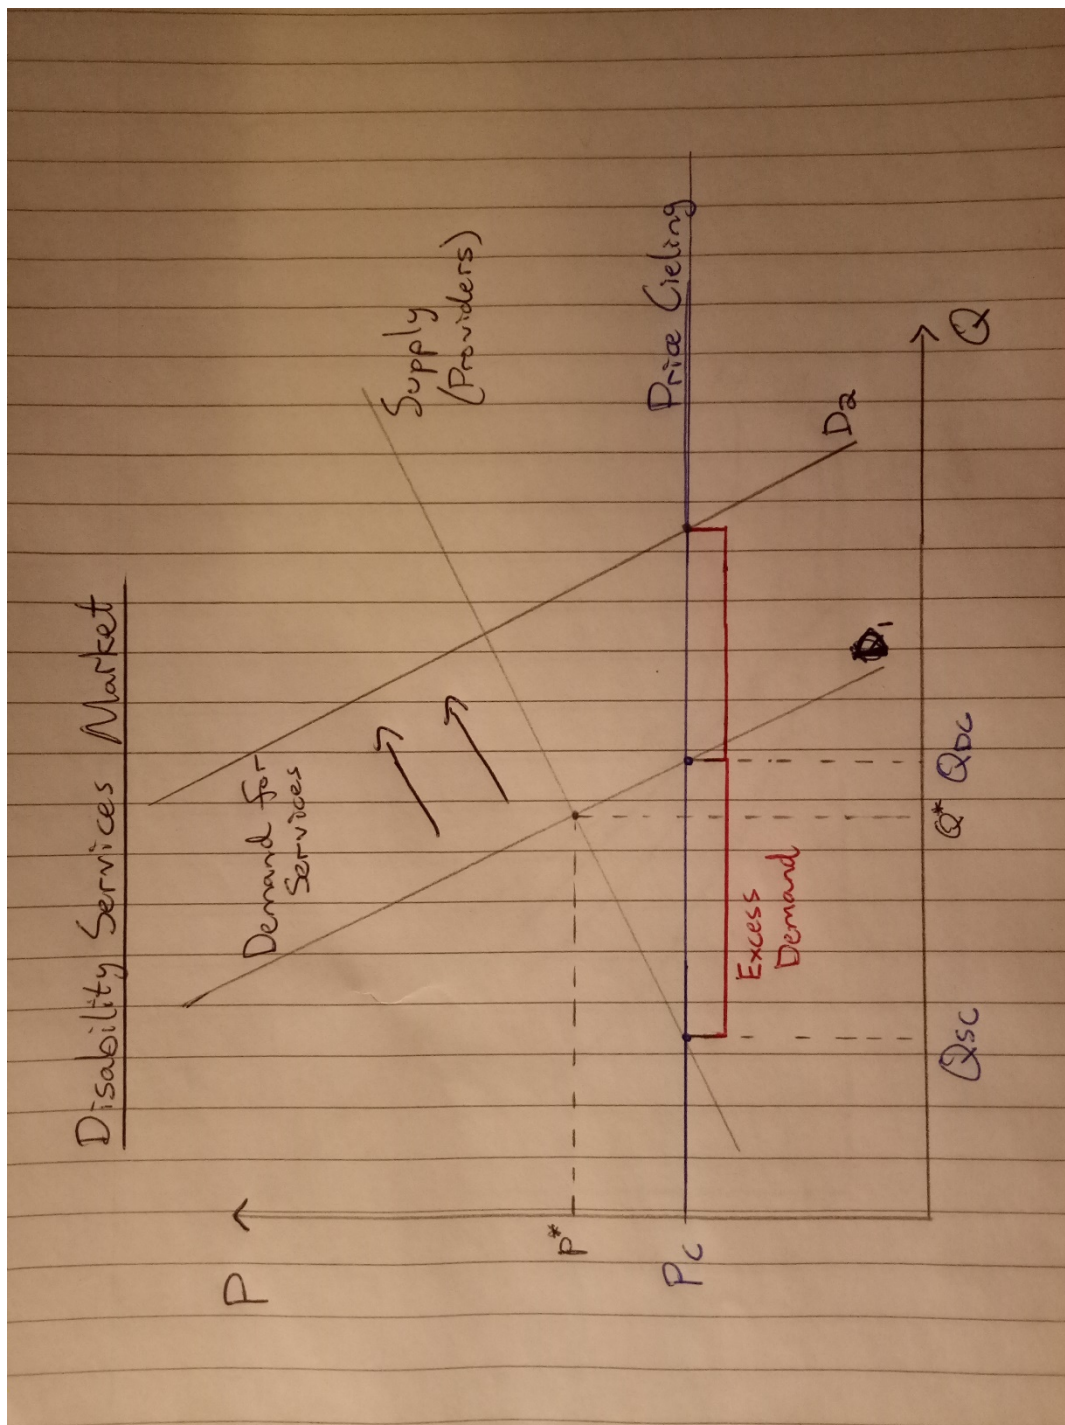 Disability Services Market
P
Demand for
Services
Supply
(Providers)
P*
Price Cieling
Pc
Excess
Demand
D1
D2
QSC
Q*
QDC
Q